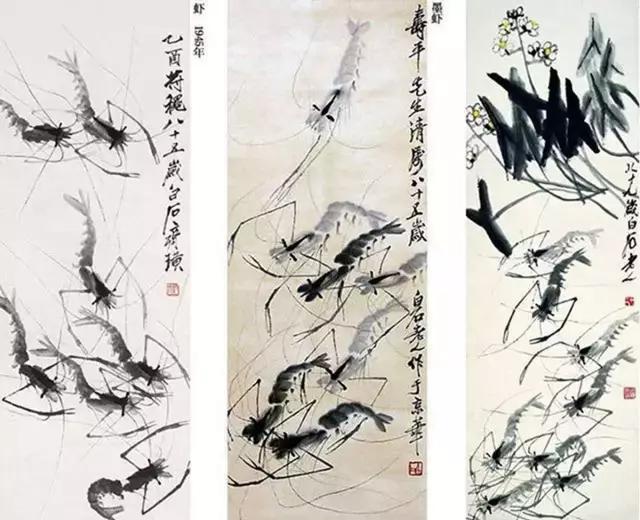 虾 1945年
乙酉将穐八十五岁白石齐璜
墨虾
寿平先生清属八十五岁
白石老人作于京华
八十九岁白石老人